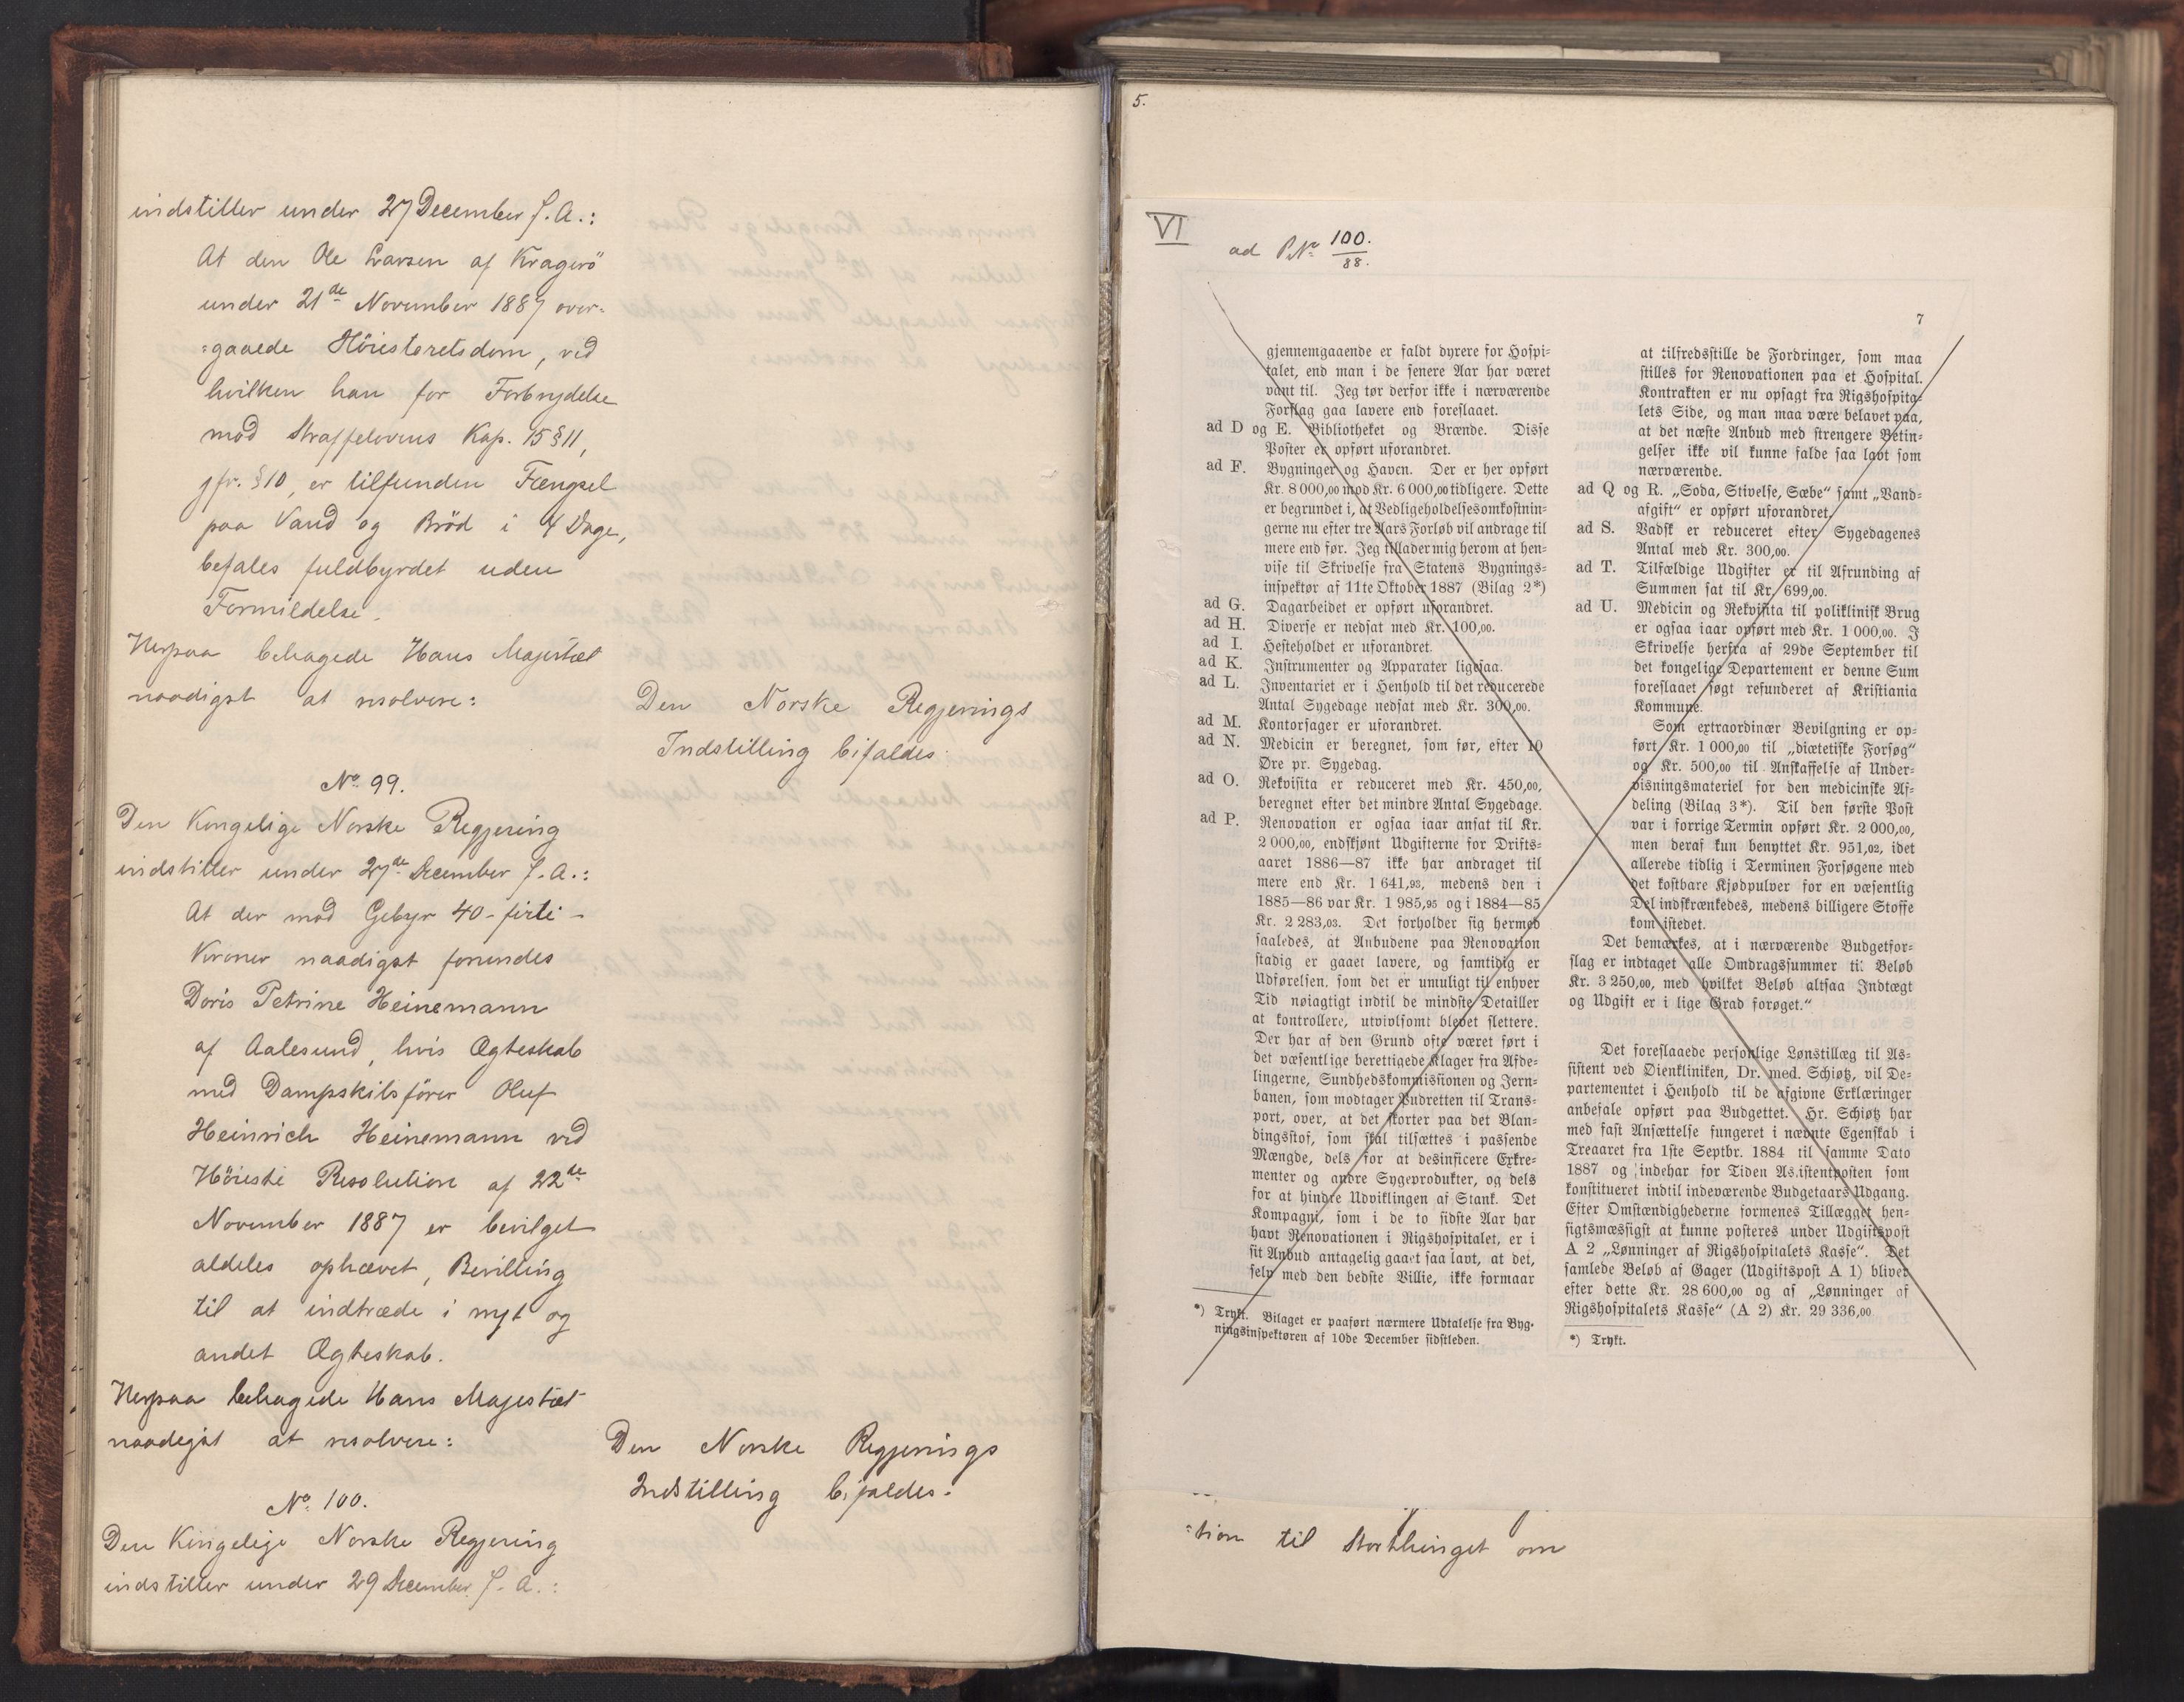 indstiller under 27 December f. A.:
At den Ole Larsen af Kragerö
under 21de November 1887 over-
:gaaede Höiesteretsdom, ved
hvilken han for Forbrydelse
mod Straffelovens Kap. 15 § 11,
jfr. § 10, er tilfunden Fængsel
paa Vand og Bröd i 4 Dage,
befales fuldbyrdet uden
Formildelse.
Herpaa behagede Hans Majestæt
naadigst at resolvere:
Den Norske Regjerings
Indstilling bifaldes.
No 99.
Den Kongelige Norske Regjering
indstiller under 27de December f. A.:
At der mod Gebyr 40 - firti -
Kroner naadigst forundes
Doris Petrine Heinemann
af Aalesund, hvis Ægteskab
med Dampskibsförer Oluf
Heinrich Heinemann ved
Höieste Resolution af 22de
November 1887 er bevilget
aldeles ophævet, Bevilling
til at indtræde i nyt og
andet Ægteskab.
Herpaa behagede Hans Majestæt
naadigst at resolvere:
Den Norske Regjerings
Indstilling bifaldes.
No 100.
Den Kongelige Norske Regjering
indstiller under 29 December f. A.:
5.
VI
ad P.No 100./88.
7
gjennemgaaende er faldt dyrere for Hospi-
talet, end man i de senere Aar har været
vant til. Jeg tør derfor ikke i nærværende
Forslag gaa lavere end foreslaaet.
ad D og E. Bibliotheket og Brænde. Disse
Poster er opført uforandret.
ad F. Bygninger og Haven. Der er her opført
Kr. 8 000,00 mod Kr. 6 000,00 tidligere. Dette
er begrundet i, at Vedligeholdelsesomkostnin-
gerne nu efter tre Aars Forløb vil andrage til
mere end før. Jeg tillader mig herom at hen-
vise til Skrivelse fra Statens Bygnings-
inspektør af 11te Oktober 1887 (Bilag 2*)
ad G. Dagarbeidet er opført uforandret.
ad H. Diverse er nedsat med Kr. 100,00.
ad I. Hesteholdet er uforandret.
ad K. Instrumenter og Apparater ligesaa.
ad L. Inventariet er i Henhold til det reducerede
Antal Sygedage nedsat med Kr. 300,00.
ad M. Kontorsager er uforandret.
ad N. Medicin er beregnet, som før, efter 10
Øre pr. Sygedag.
ad O. Rekvisita er reduceret med Kr. 450,00,
beregnet efter det mindre Antal Sygedage.
ad P. Renovation er ogsaa iaar ansat til Kr.
2 000,00, endskjønt Udgifterne for Drifts-
aaret 1886—87 ikke har andraget til
mere end Kr. 1 641,93, medens den i
1885—86 var Kr. 1 985,95 og i 1884—85
Kr. 2 283,03. Det forholder sig hermed
saaledes, at Anbudene paa Renovation
stadig er gaaet lavere, og samtidig er
Udførelsen, som det er umuligt til enhver
Tid nøiagtigt indtil de mindste Detailler
at kontrollere, utvivlsomt blevet slettere.
Der har af den Grund ofte været ført i
det væsentlige berettigede Klager fra Afde-
lingerne, Sundhedskommissionen og Jern-
banen, som modtager Pudretten til Trans-
port, over, at det skorter paa det Blan-
dingsstof, som skal tilsættes i passende
Mængde, dels for at desinficere Exkre-
menter og andre Sygeprodukter, og dels
for at hindre Udviklingen af Stank. Det
Kompagni, som i de to sidste Aar har
havt Renovationen i Rigshospitalet, er i
sit Anbud antagelig gaaet saa lavt, at det,
selv med den bedste Villie, ikke formaar
*) Trykt. Bilaget er paaført nærmere Udtalelse fra Byg-
ningsinspektøren af 10de December sidstleden.
at tilfredsstille de Fordringer, som maa
stilles for Renovationen paa et Hospital.
Kontrakten er nu opsagt fra Rigshospita-
lets Side, og man maa være belavet paa,
at det næste Anbud med strengere Betin-
gelser ikke vil kunne falde saa lavt som
nærværende.
ad Q og R. „Soda, Stivelse, Sæbe“ samt „Vand-
afgift“ er opført uforandret.
ad S. Vadsk er reduceret efter Sygedagenes
Antal med Kr. 300,00.
ad T. Tilfældige Udgifter er til Afrunding af
Summen sat til Kr. 699,00.
ad U. Medicin og Rekvisita til poliklinisk Brug
er ogsaa iaar opført med Kr. 1 000,00. I
Skrivelse herfra af 29de September til
det kongelige Departement er denne Sum
foreslaaet søgt refunderet af Kristiania
Kommune.
Som extraordinær Bevilgning er op-
ført Kr. 1 000,00 til „diætetiske Forsøg“
og Kr. 500,00 til Anskaffelse af Under-
visningsmateriel for den medicinske Af-
deling (Bilag 3*). Til den første Post
var i forrige Termin opført Kr. 2 000,00,
men deraf kun benyttet Kr. 951,02, idet
allerede tidlig i Terminen Forsøgene med
det kostbare Kjødpulver for en væsentlig
Del indskrænkedes, medens billigere Stoffe
kom istedet.
Det bemærkes, at i nærværende Budgetfor-
slag er indtaget alle Omdragssummer til Beløb
Kr. 3 250,00, med hvilket Beløb altsaa Indtægt
og Udgift er i lige Grad forøget.“
Det foreslaaede personlige Lønstillæg til As-
sistent ved Øienkliniken, Dr. med. Schiøtz, vil De-
partementet i Henhold til de afgivne Erklæringer
anbefale opført paa Budgettet. Hr. Schiøtz har
med fast Ansættelse fungeret i nævnte Egenskab i
Treaaret fra 1ste Septbr. 1884 til samme Dato
1887 og indehar for Tiden Assistentposten som
konstitueret indtil indeværende Budgetaars Udgang.
Efter Omstændighederne formenes Tillægget hen-
sigtsmæssigst at kunne posteres under Udgiftspost
A 2 „Lønninger af Rigshospitalets Kasse“. Det
samlede Beløb af Gager (Udgiftspost A 1) bliver
efter dette Kr. 28 600,00 og af „Lønninger af
Rigshospitalets Kasse“ (A 2) Kr. 29 336,00
*) Trykt.
:tion til Storthinget om